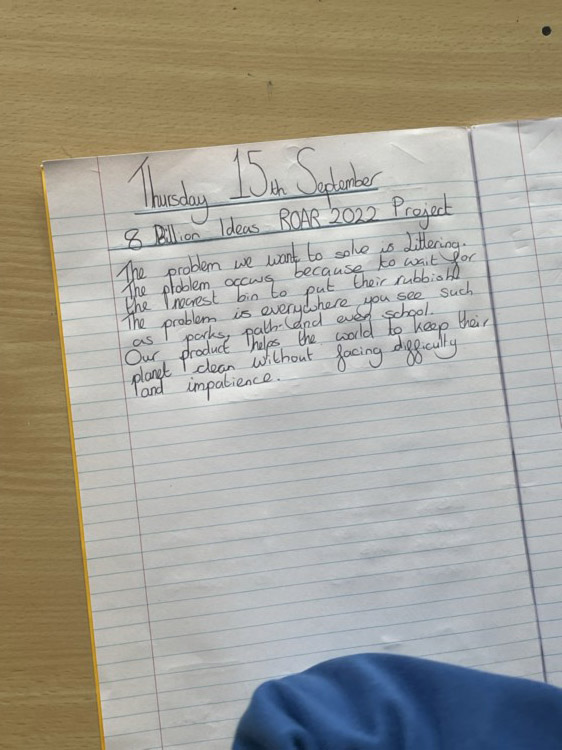 Thursday 15th September
8 Billion Ideas ROAR 2022 Project
The problem we want to solve is Littering.
The problem occurs because to wait for
the nearest bin to put their rubbish
The problem is everywhere you see such
as parks, path and even school.
Our product helps the world to keep their
planet clean without facing difficulty
and impatience.